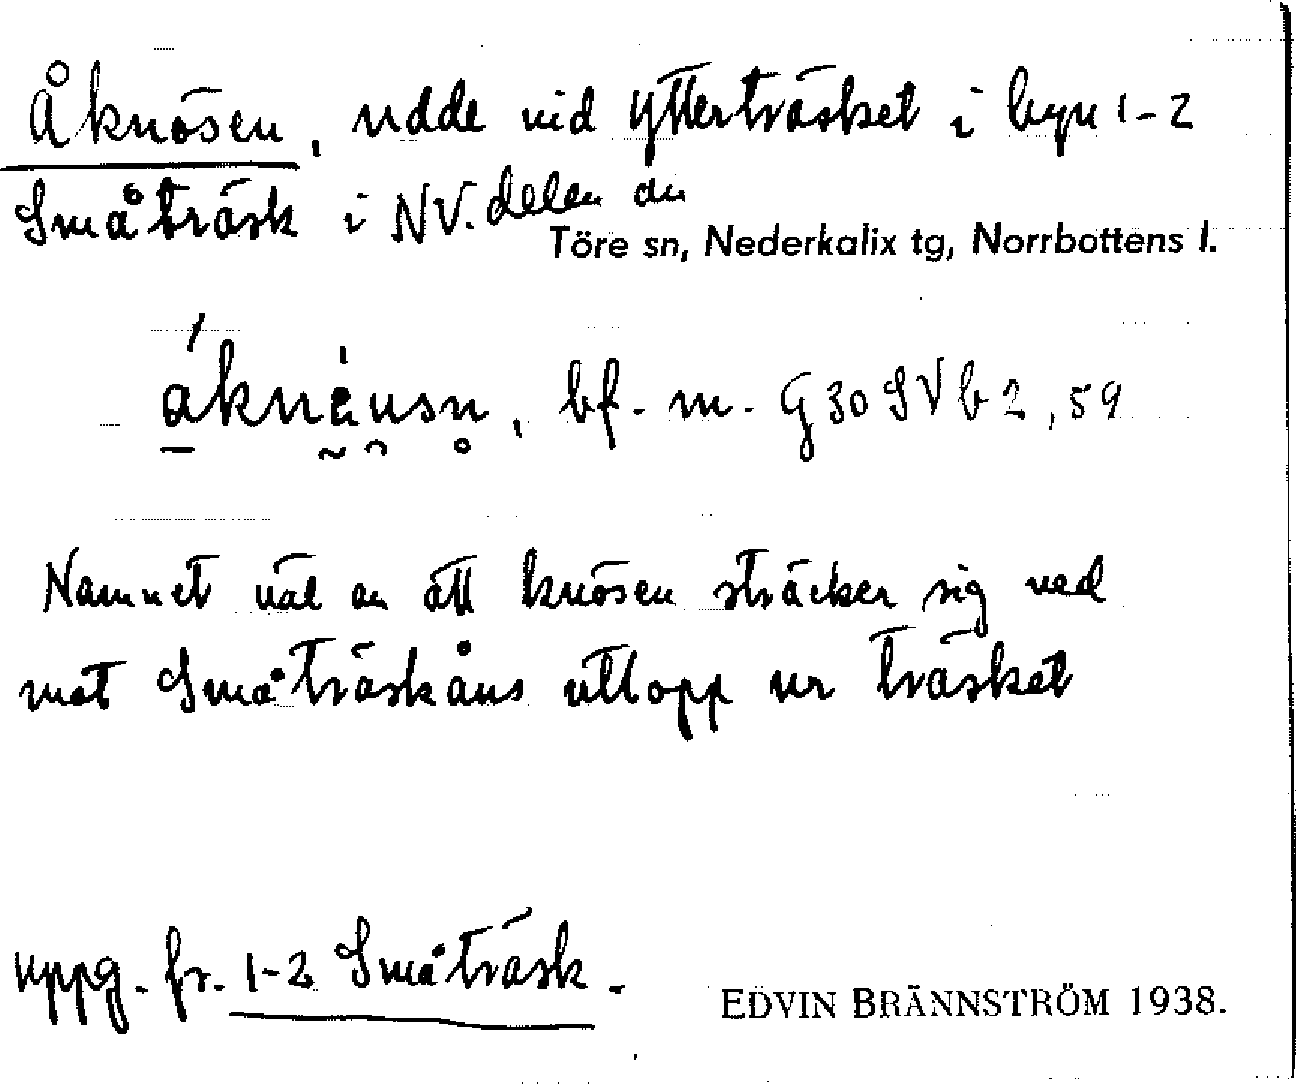 Åknösen, udde vid Ytterträsket i byn 1-2
Småträsk i NV. delen av
Töre sn, Nederkalix tg, Norrbottens l.
bf. m. G30SVb2, 59
Namnet väl av att knösen sträcker sig ned
mot Småträskåns utlopp ur träsket
uppg. fr. 1-2 Småträsk.
EDVIN BRÄNNSTRÖM 1938.